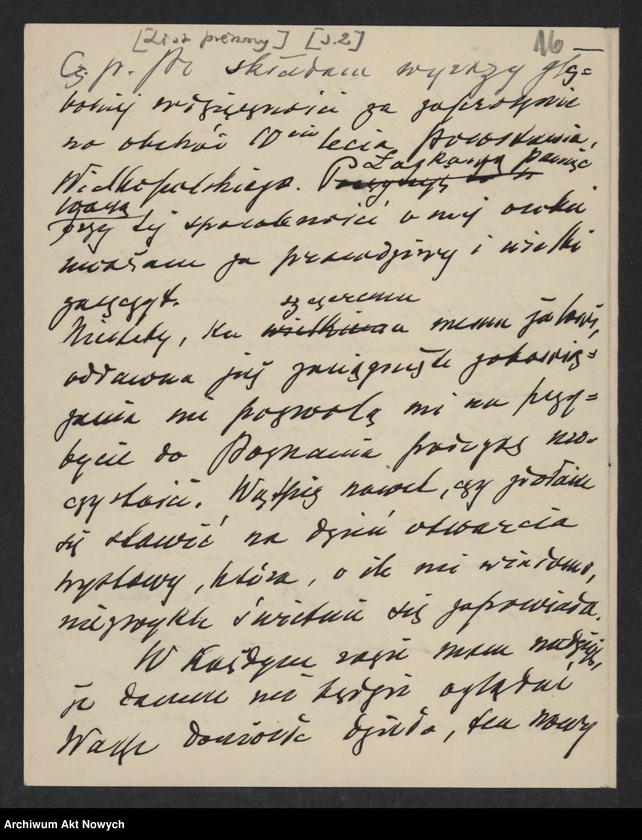 [List prezesa] [s.2]
16
Cz. p. Pr składam wyrazy głę=
bokiej wdzięczności za zaproszenie
na obchód 10cio lecia Powstania
Wielkopolskiego. Łaskawą pamięć
Waszą
przy tej sposobności o mej osobie
uważam za prawdziwy i wielki
zaszczyt.
Niestety, ku szczeremu wielkiemu memu żalowi,
oddawna już zaciągnięte zobowią=
zania nie pozwolą mi na przy=
bycie do Poznania podczas uro-
czystości. Wątpię nawet, czy zdołam
się stawić na dzień otwarcia
wystawy, która, o ile mi wiadomo,
niezwykle świetnie się zapowiada.
W każdym razie mam nadzieję,
że danem mi będzie oglądać
Wasze doniosłe dzieło, ten nowy
Archiwum Akt Nowych